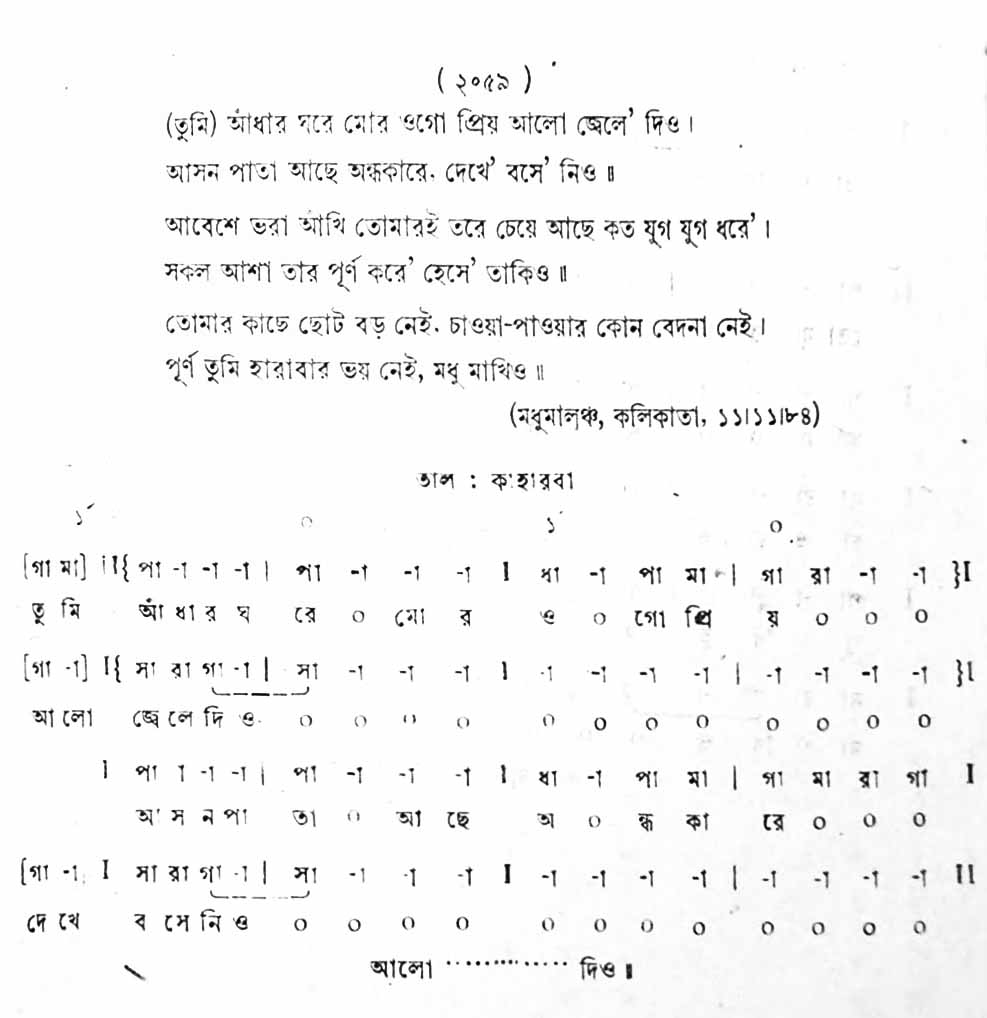 ( ২০৫৯ )
(তুমি) আঁধার ঘরে মোর ওগো প্রিয় আলো জ্বেলে' দিও।
আসন পাতা আছে অন্ধকারে, দেখে' বসে' নিও॥
আবেশে ভরা আঁখি তোমারই তরে চেয়ে আছে কত যুগ যুগ ধরে'।
সকল আশা তার পূর্ণ করে' হেসে' তাকিও॥
তোমার কাছে ছোট বড় নেই, চাওয়া-পাওয়ার কোন বেদনা নেই।
পূর্ণ তুমি হারাবার ভয় নেই, মধু মাখিও॥
(মধুমালঞ্চ, কলিকাতা, ১১।১১।৮৪)
তাল : কাহারবা
১´ ০ ১´ ০
[গা মা] II{ পা -া -া -া | পা -া -া -া I ধা -া পা মা | গা রা -া -া }I
তু মি আঁ ধা র ঘ রে ০ মো র ও ০ গো প্রি য় ০ ০ ০
[গা -া] I{ সা রা গা -া | সা -া -া -া I -া -া -া -া | -া -া -া -া }I
আ লো জ্বে লে দি ও ০ ০ ০ ০ ০ ০ ০ ০ ০ ০ ০ ০
I পা া -া -া | পা -া -া -া I ধা -া পা মা | গা মা রা গা I
আ স ন পা তা ০ আ ছে অ ০ ন্ধ কা রে ০ ০ ০
[গা -া I সা রা গা -া | সা -া -া -া I -া -া -া -া | -া -া -া -া II
দে খে ব সে নি ও ০ ০ ০ ০ ০ ০ ০ ০ ০ ০ ০ ০
আলো ............... দিও॥